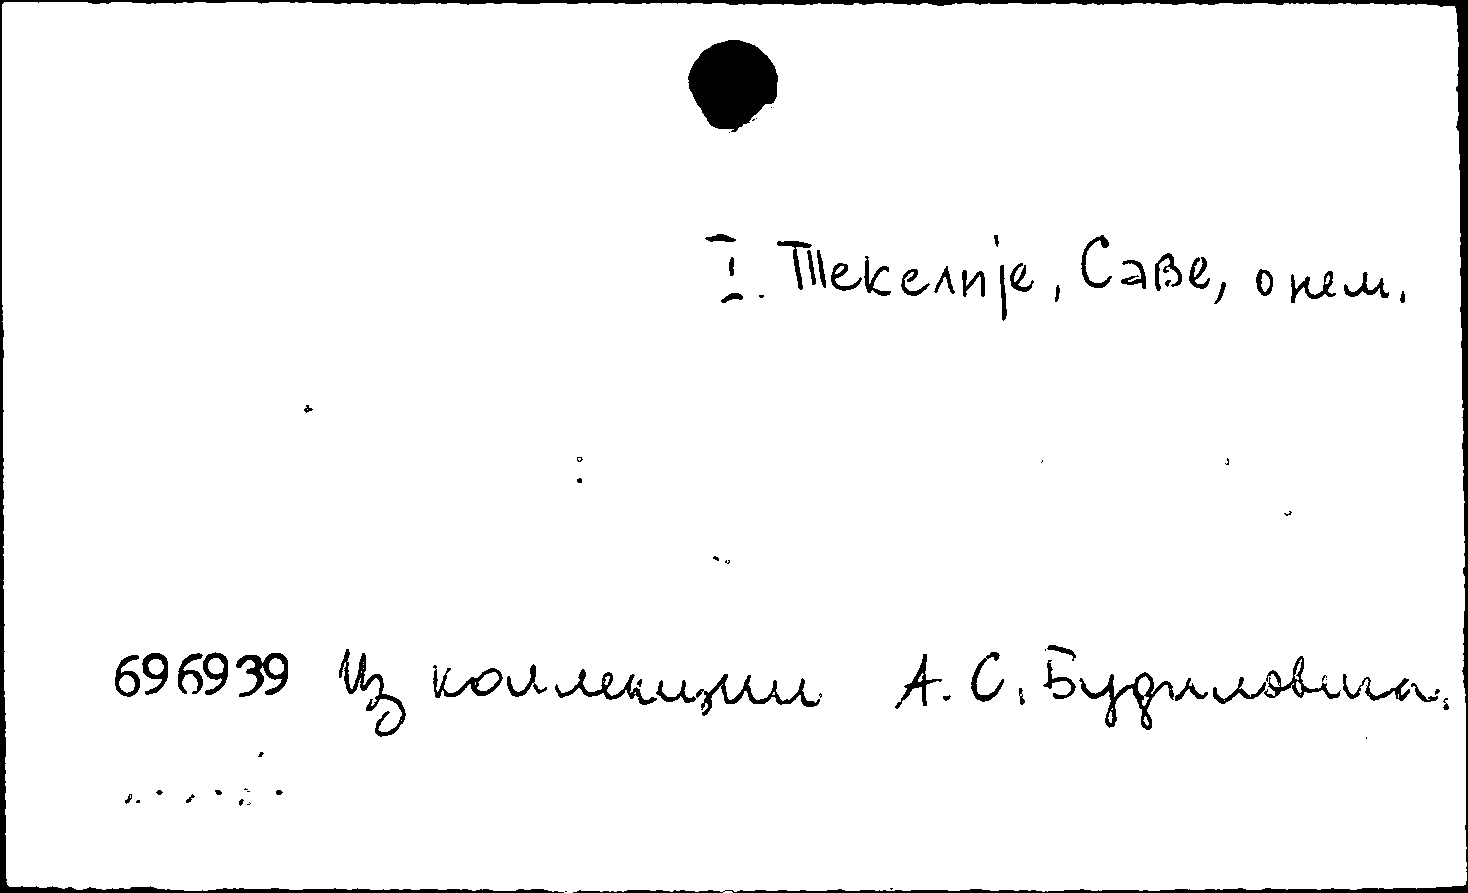 I. Текелије, Саве, о нем.
696939 Из коллекции А. С. Будиловича.